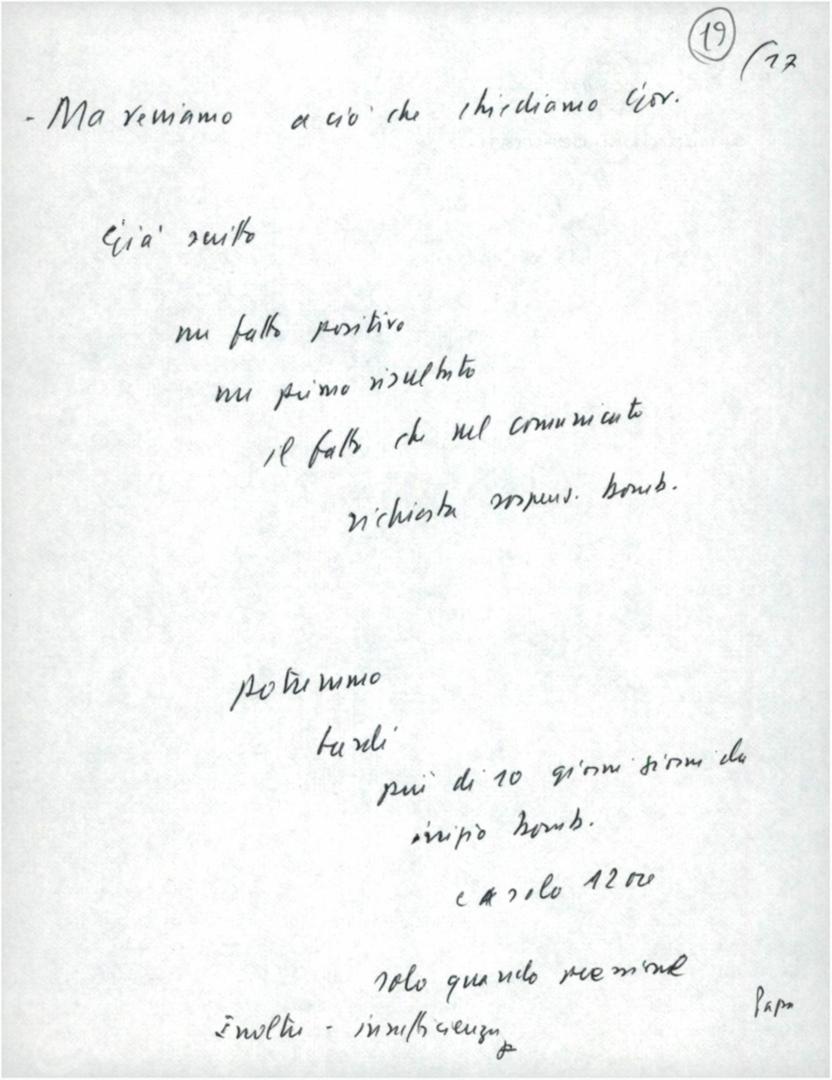 19
/17
- Ma veniamo a ciò che chiediamo Gov.
Già scritto
un fatto positivo
un primo risultato
il fatto che nel comunicato
richiesta sospens. bomb.
potremmo
tardi
più di 10 giorni giorni da
inizio bomb.
e a solo 12 ore
solo quando
Papa
Inoltre - insufficienza